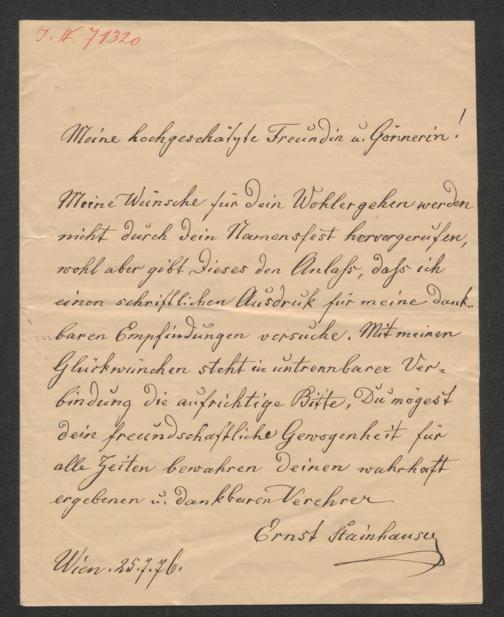 I. N. 71320
Meine hochgeschätzte Freundin u. Gönnerin!
Meine Wünsche für Dein Wohlergehen werden
nicht durch dein Namensfest hervorgerufen,
wohl aber gibt Dieses den Anlaß, daß ich
einen schriftlichen Ausdruk für meine dank-
baren Empfindungen versuche. Mit meinen
Glückwünchen steht in untrennbarer Ver-
bindung die aufrichtige Bitte, Du mögest
dein freundschaftliche Gewogenheit für
alle Zeiten bewahren Deinen wahrhaft
ergebenen u. dankbaren Verehrer
Ernst Stainhauser
Wien. 25.7.76.